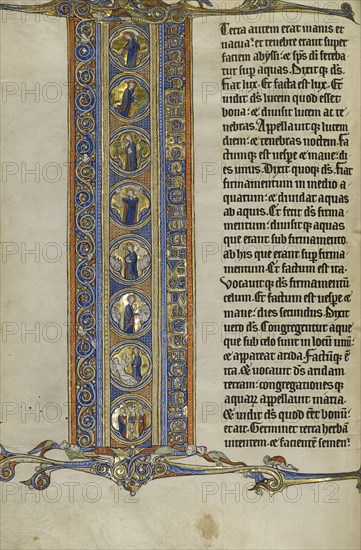 Terra autem erat inanis et
vacua: et tenebre erant super
faciem abyssi: et sps di ferebat
tur sup aquas. Dixit qz ds.
fiat lux. Et facta est lux. Et
vidit ds lucem quod esset
bona: et divisit lucem ac te
nebras. Appellavit qz lucem
diem: et tenebras noctem. Fa
ctumqz est vespe et mane: di
es unus. Dixit quoqz ds. fiat
firmamentum in medio a
quarum: et dividat aquas
ab aquis. Et fecit ds firma
mentum: divisitqz aquas
que erant sub firmamento.
ab his que erant sup firma
mentum. Et factum est ita.
Vocavit qz ds firmamentu
celum. Et factum est vespe et
mane: dies secundus. Dixit
vero ds. Congregentur aque
que sub celo sunt in locu unu:
et appareat arida. Factuqz e
ita. Et vocavit ds aridam
terram: congregationes qz
aquaz appellavit maria.
Et vidit ds quod eet bonu:
et ait. Germinet terra herba
virentem: et facientem semen: